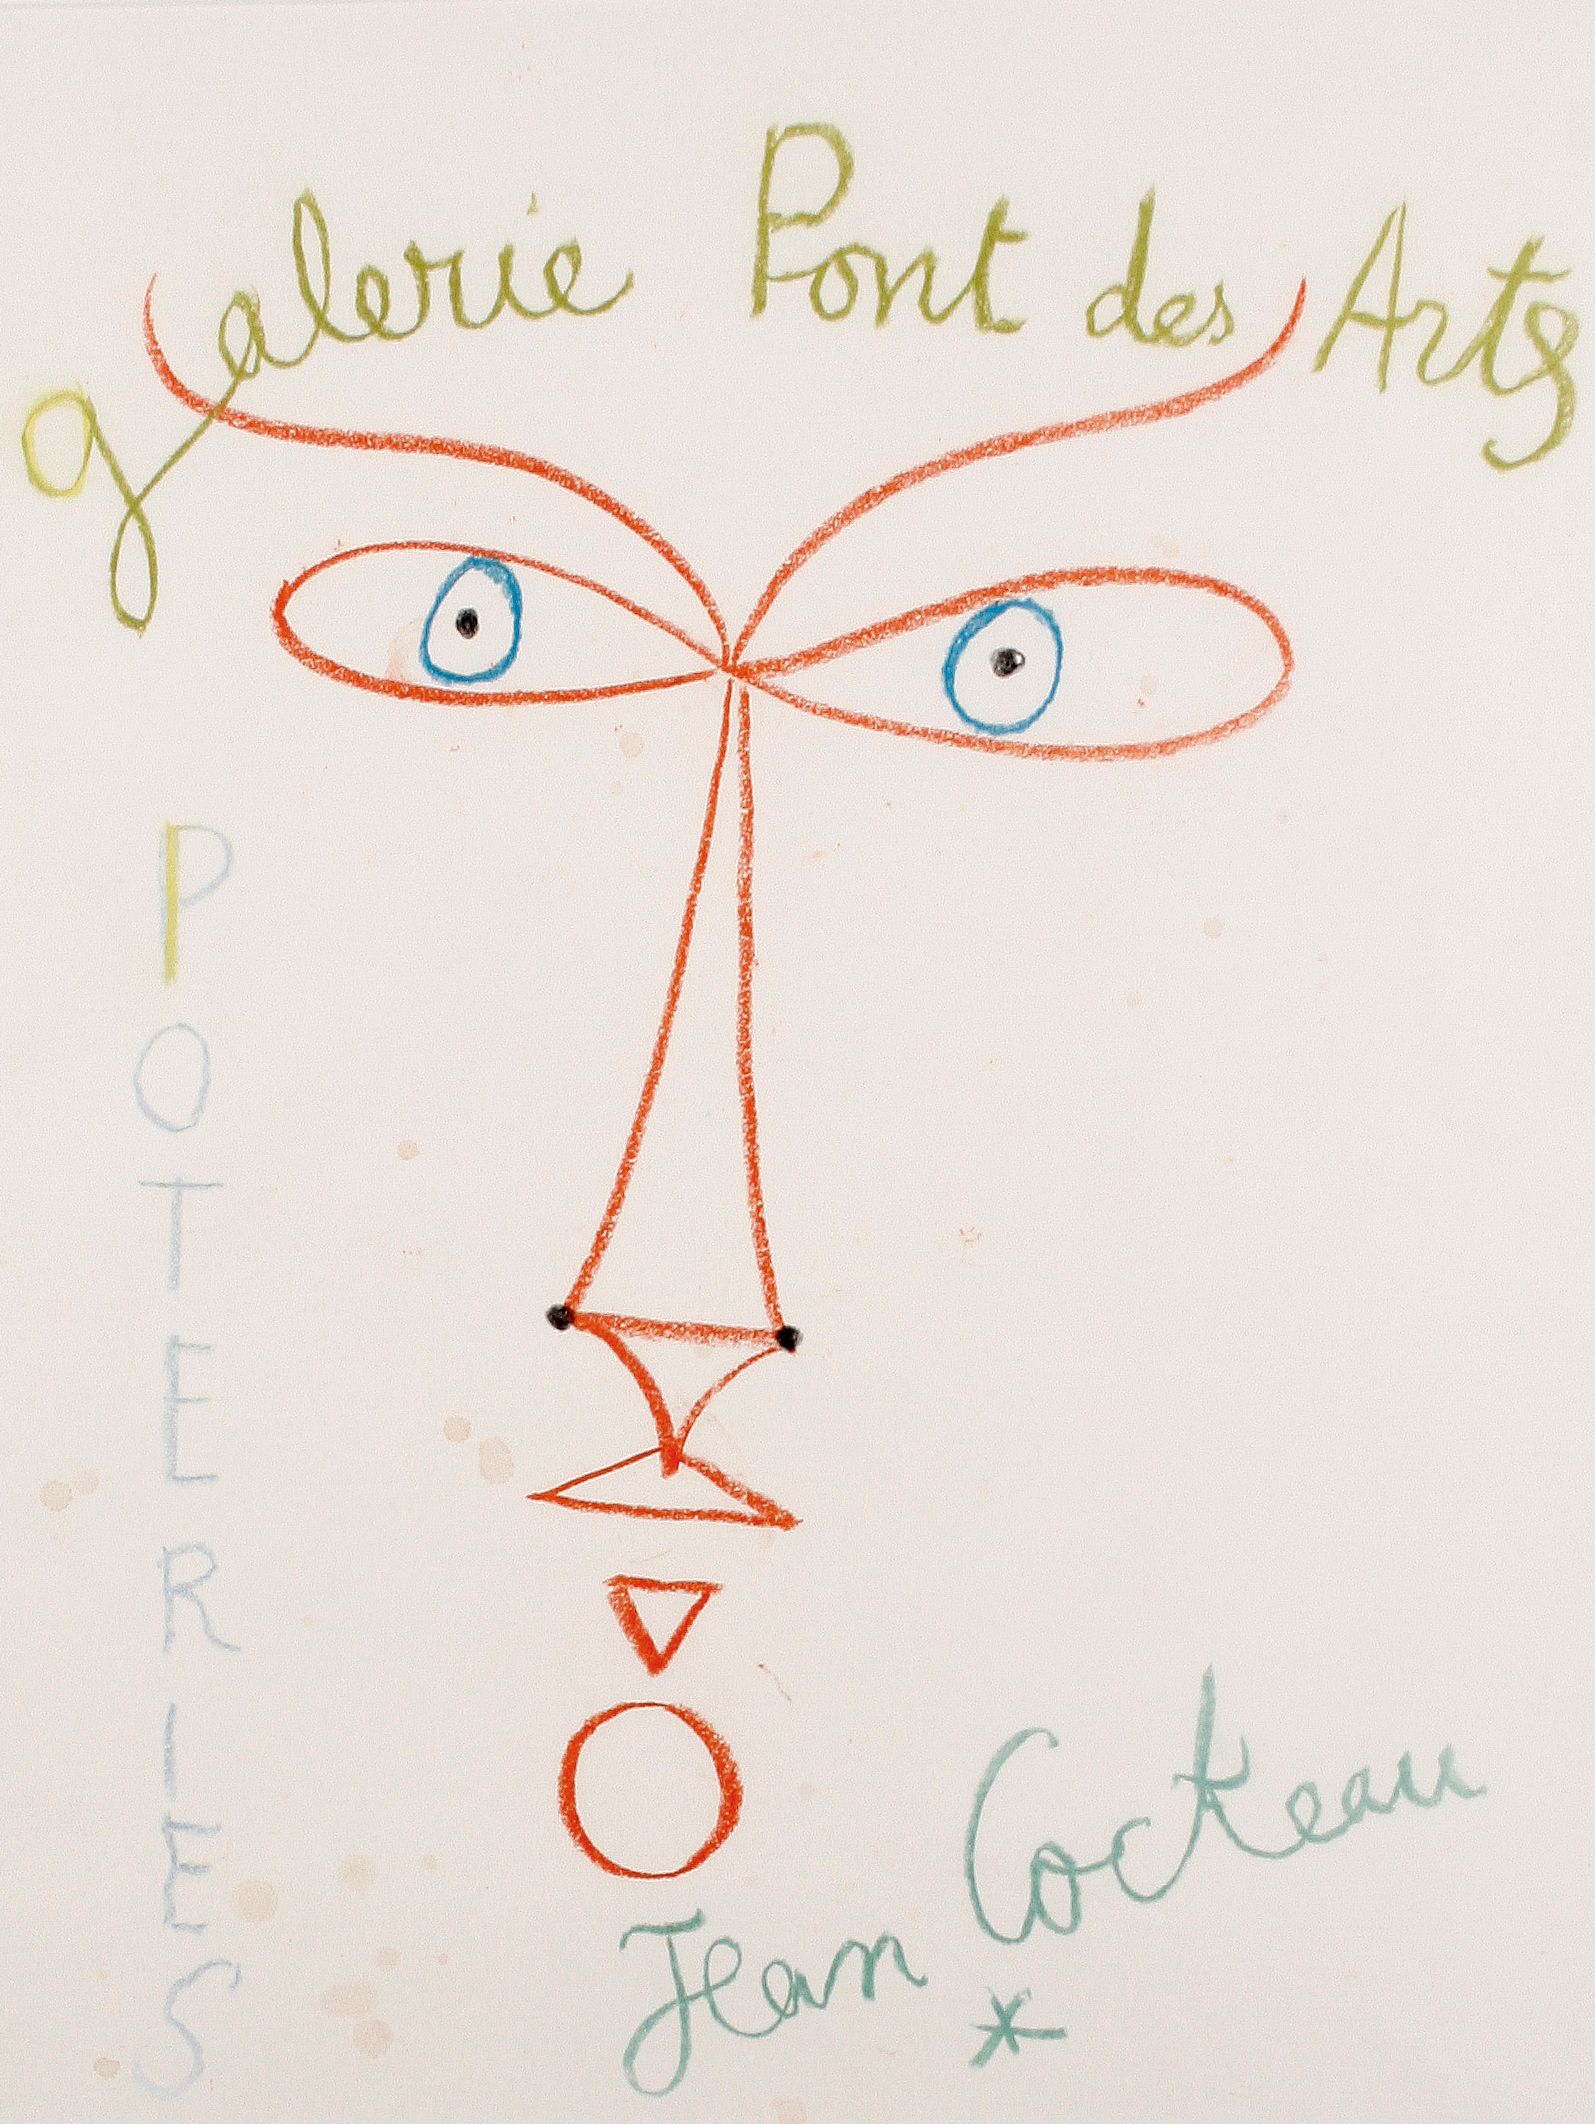 galerie Pont des Arts
POTERIES
Jean Cocteau *